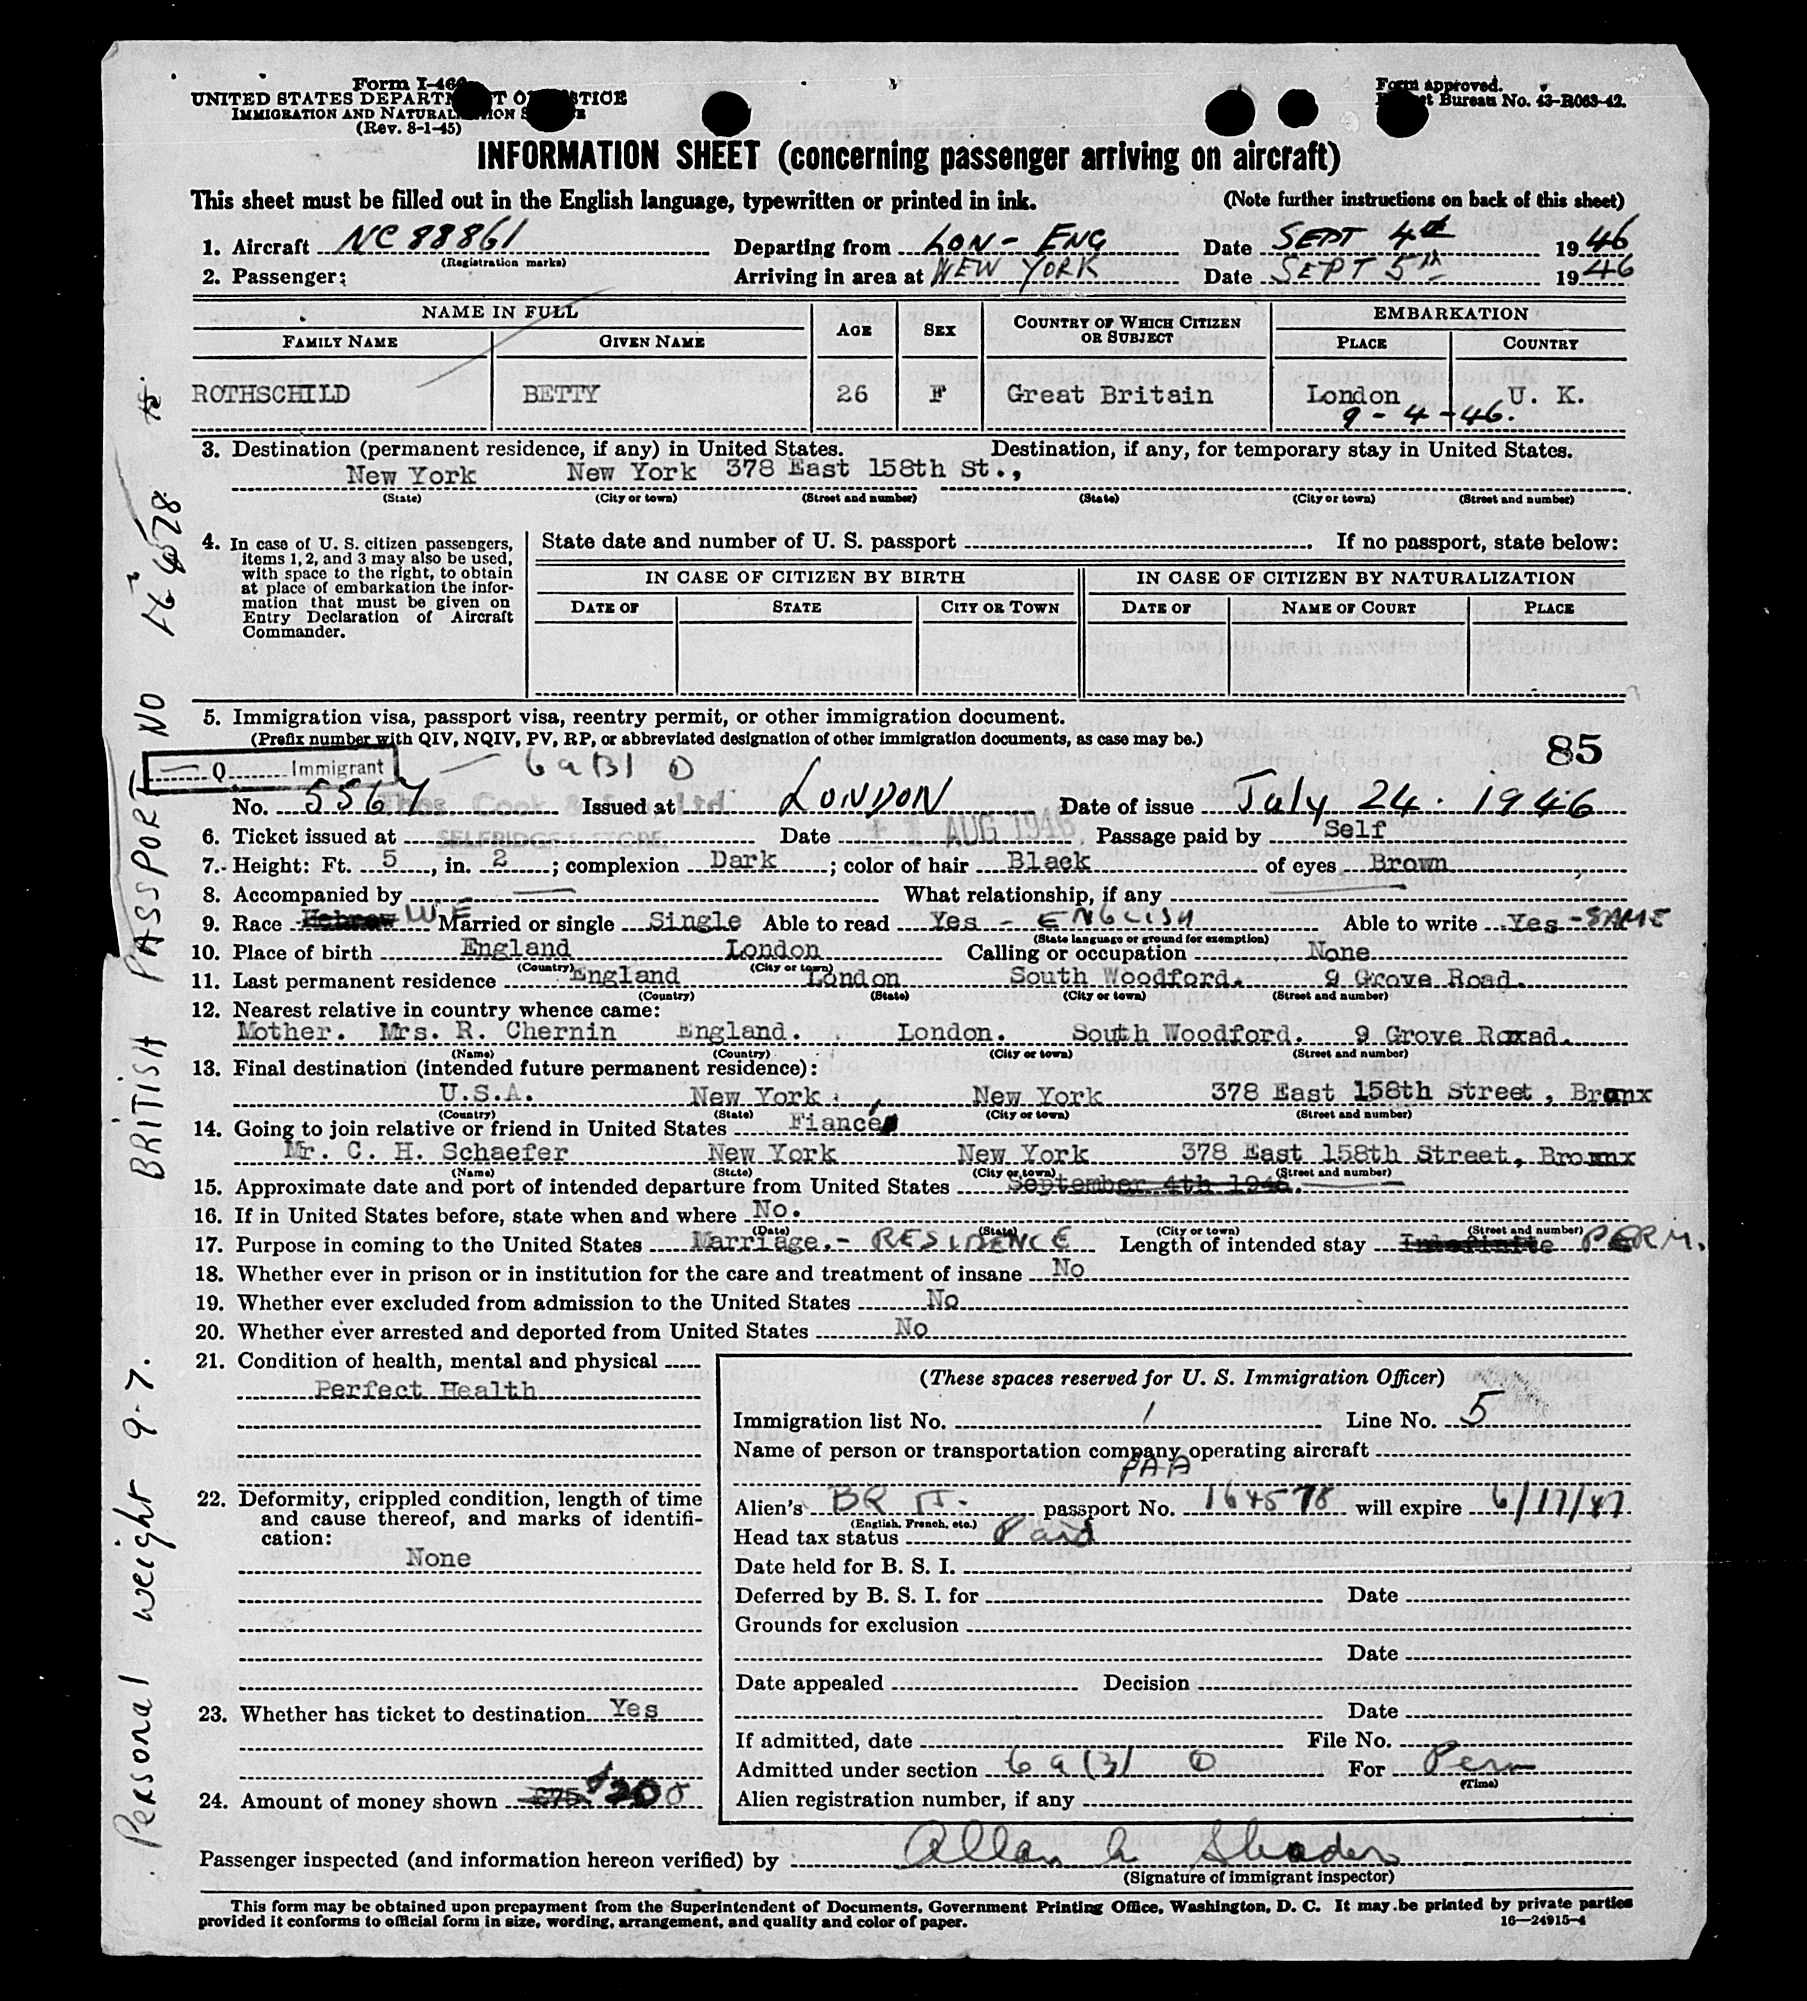 Form I-466
UNITED STATES DEPARTMENT OF JUSTICE
IMMIGRATION AND NATURALIZATION SERVICE
(Rev. 8-1-45)
Form approved.
Budget Bureau No. 43-R063-42.
INFORMATION SHEET (concerning passenger arriving on aircraft)
This sheet must be filled out in the English language, typewritten or printed in ink. (Note further instructions on back of this sheet)
1. Aircraft NC 88861 Departing from LON - ENG Date SEPT 4th 1946
(Registration marks)
2. Passenger: Arriving in area at NEW YORK Date SEPT 5th 1946
NAME IN FULL AGE SEX COUNTRY OF WHICH CITIZEN OR SUBJECT EMBARKATION
FAMILY NAME GIVEN NAME PLACE COUNTRY
ROTHSCHILD BETTY 26 F Great Britain London U. K.
9 - 4 - 46.
3. Destination (permanent residence, if any) in United States. Destination, if any, for temporary stay in United States.
New York New York 378 East 158th St.,
(State) (City or town) (Street and number) (State) (City or town) (Street and number)
4. In case of U. S. citizen passengers, items 1, 2, and 3 may also be used, with space to the right, to obtain at place of embarkation the information that must be given on Entry Declaration of Aircraft Commander.
State date and number of U. S. passport If no passport, state below:
IN CASE OF CITIZEN BY BIRTH IN CASE OF CITIZEN BY NATURALIZATION
DATE OF STATE CITY OR TOWN DATE OF NAME OF COURT PLACE
5. Immigration visa, passport visa, reentry permit, or other immigration document.
(Prefix number with QIV, NQIV, PV, RP, or abbreviated designation of other immigration documents, as case may be.)
85
Q Immigrant 6a(3) 0
No. 5567 Issued at LONDON Date of issue July 24. 1946
Thos. Cook & Son, Ltd.
6. Ticket issued at SELFRIDGES STORE. Date 1 AUG 1946 Passage paid by Self
7. Height: Ft. 5, in. 2; complexion Dark; color of hair Black of eyes Brown
8. Accompanied by What relationship, if any
9. Race Hebrew WE Married or single Single Able to read Yes - ENGLISH Able to write Yes - SAME
(State language or ground for exemption)
10. Place of birth England London Calling or occupation None
(Country) (City or town)
11. Last permanent residence England London South Woodford. 9 Grove Road.
(Country) (State) (City or town) (Street and number)
12. Nearest relative in country whence came:
Mother. Mrs. R. Chernin England. London. South Woodford. 9 Grove Roxad.
(Name) (Country) (City or town) (Street and number)
13. Final destination (intended future permanent residence):
U.S.A. New York, New York 378 East 158th Street, Bronx
(Country) (State) (City or town) (Street and number)
14. Going to join relative or friend in United States Fiancé
Mr. C. H. Schaefer New York New York 378 East 158th Street, Bronx
(Name) (State) (City or town) (Street and number)
15. Approximate date and port of intended departure from United States September 4th 1946.
16. If in United States before, state when and where No.
(Date) (State) (City or town) (Street and number)
17. Purpose in coming to the United States Marriage. - RESIDENCE Length of intended stay Indefinite PERM.
18. Whether ever in prison or in institution for the care and treatment of insane No
19. Whether ever excluded from admission to the United States No
20. Whether ever arrested and deported from United States No
21. Condition of health, mental and physical
Perfect Health
22. Deformity, crippled condition, length of time and cause thereof, and marks of identification:
None
23. Whether has ticket to destination Yes
24. Amount of money shown £75 $200
(These spaces reserved for U. S. Immigration Officer)
Immigration list No. 1 Line No. 5
Name of person or transportation company operating aircraft
PAA
Alien's BRIT. passport No. 164578 will expire 6/17/47
(English, French, etc.)
Head tax status Paid
Date held for B. S. I.
Deferred by B. S. I. for Date
Grounds for exclusion
Date
Date appealed Decision
Date
If admitted, date File No.
Admitted under section 6a(3) 0 For Perm
(Time)
Alien registration number, if any
Passenger inspected (and information hereon verified) by Allan L Shader
(Signature of immigrant inspector)
This form may be obtained upon prepayment from the Superintendent of Documents, Government Printing Office, Washington, D. C. It may be printed by private parties
provided it conforms to official form in size, wording, arrangement, and quality and color of paper. 16—24915-4
Personal weight 9-7. BRITISH PASSPORT NO 164578